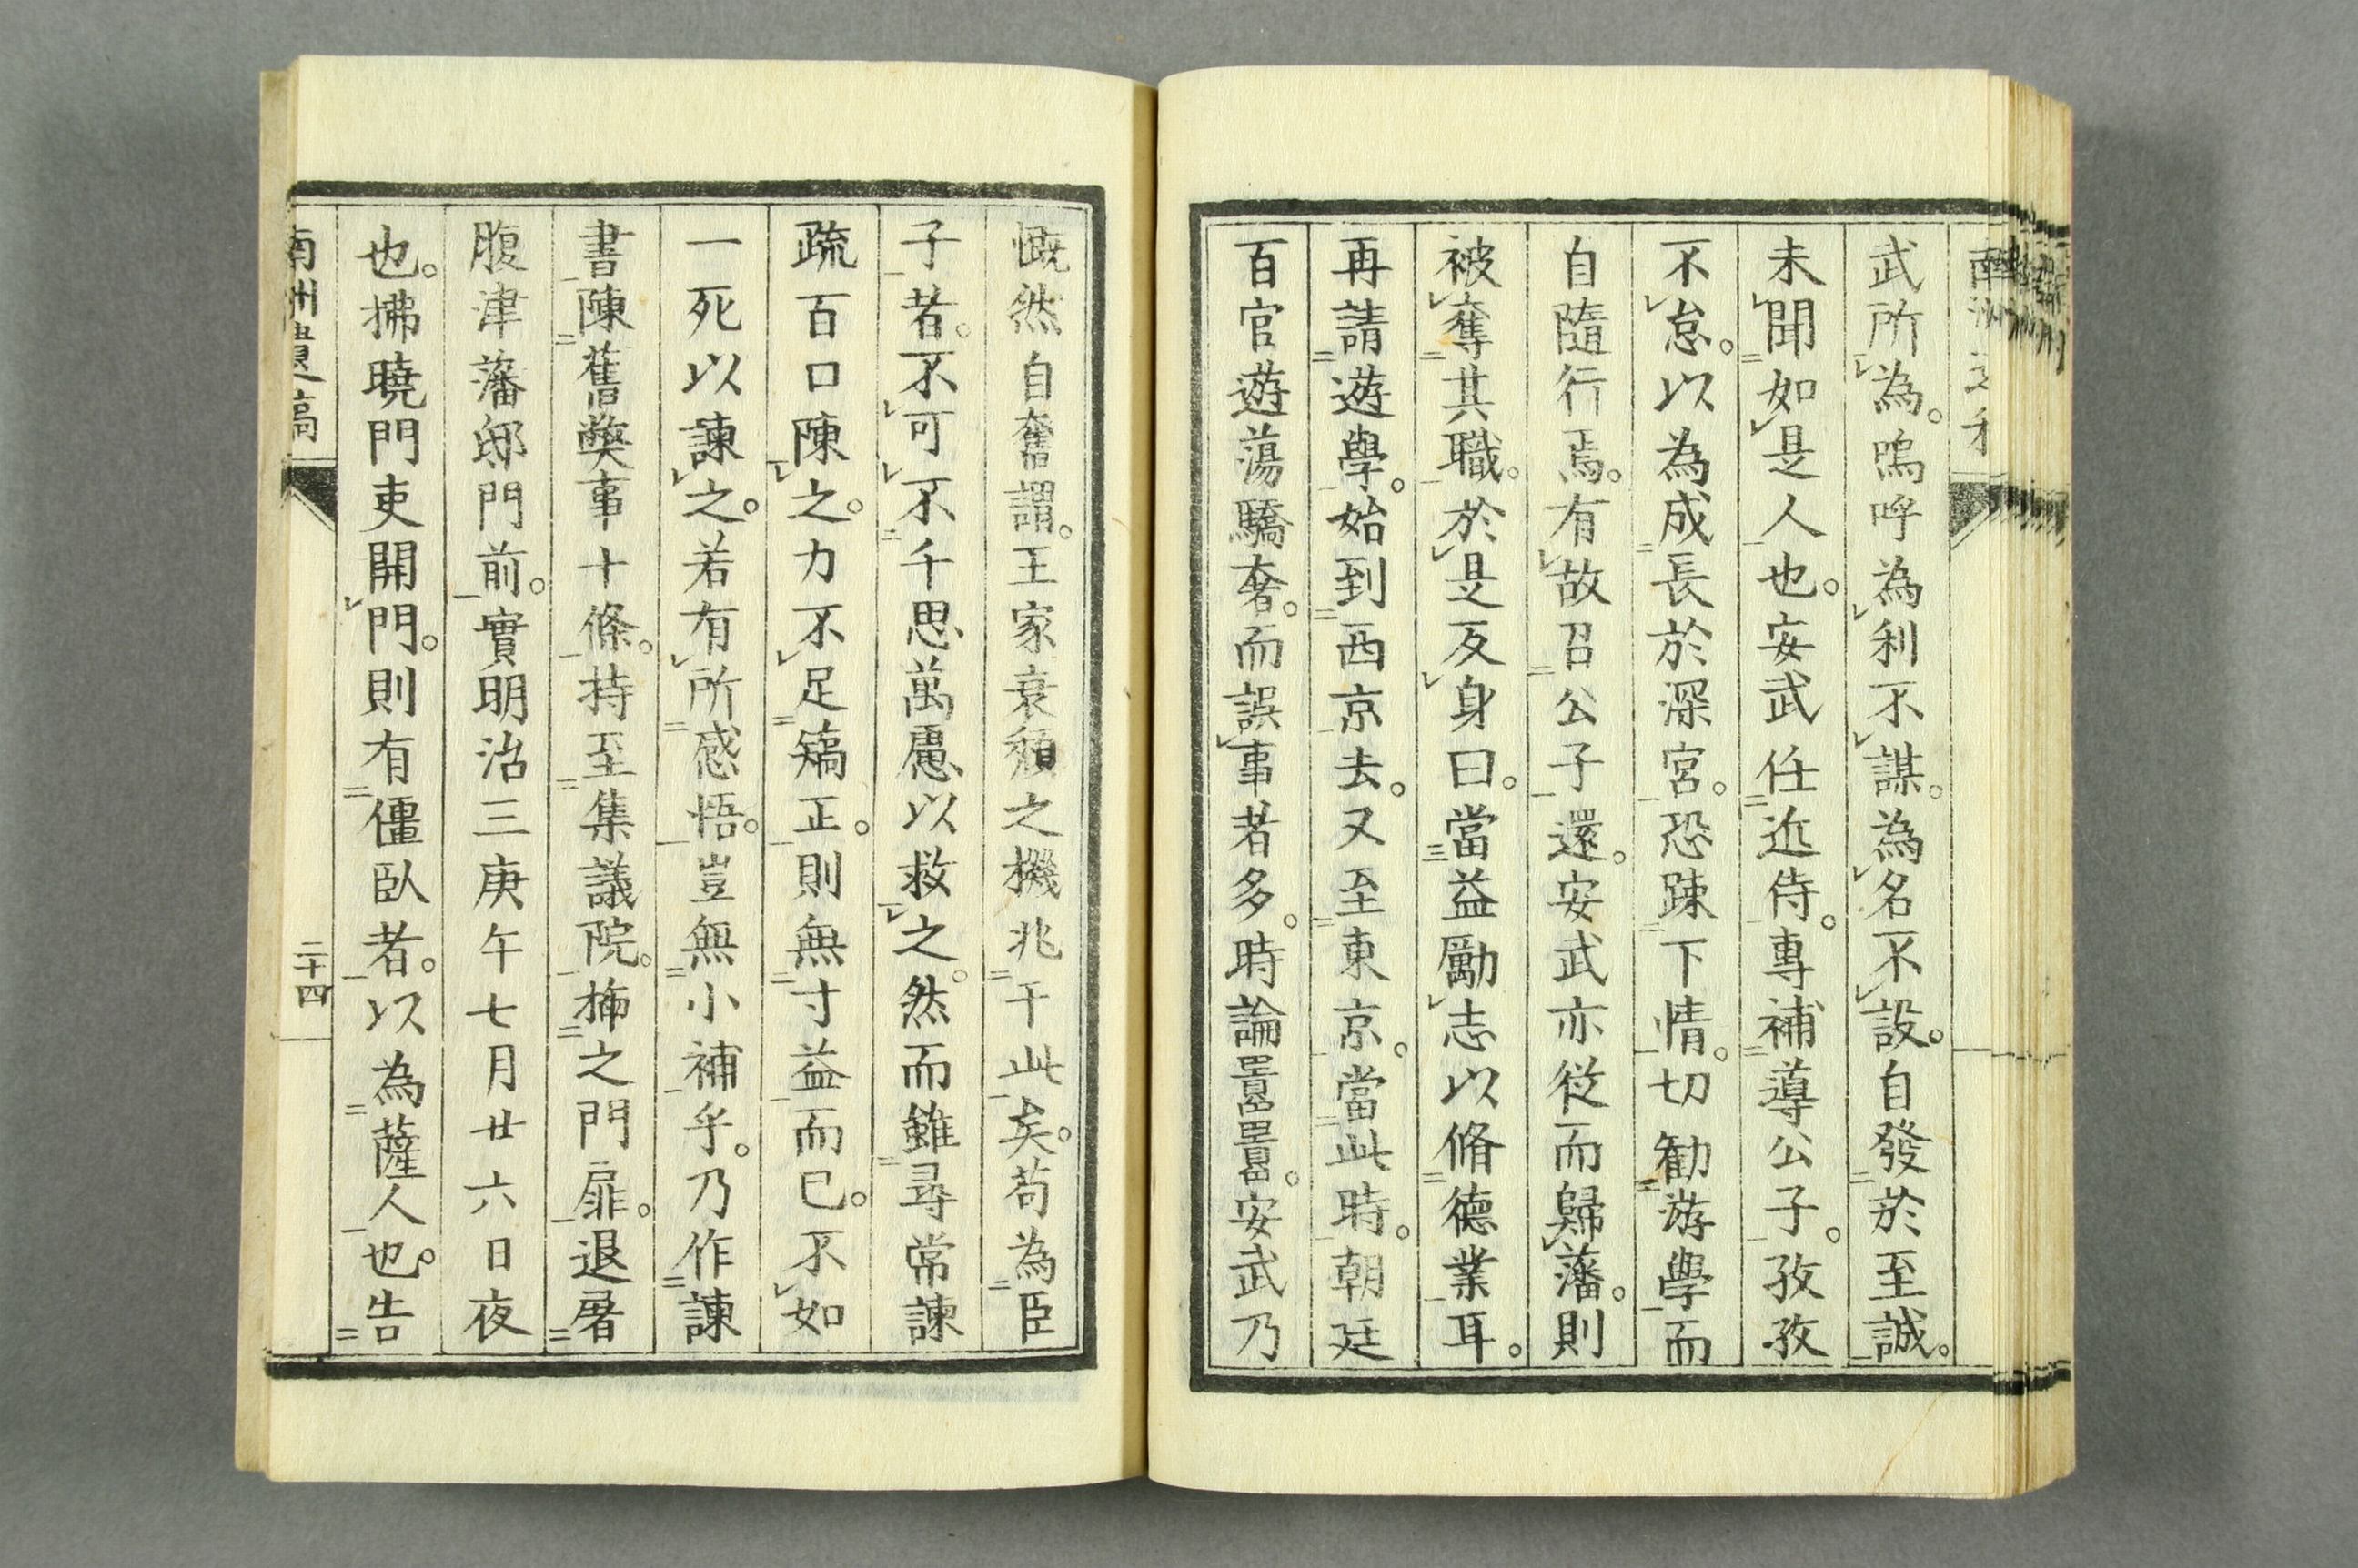 武所為。嗚呼為利不謀。為名不設。自發於至誠。
未聞如是人也。安武任近侍。專補導公子。孜孜
不怠。以為成長於深宮。恐疎下情。切勧游學而
自隨行焉。有故召公子還。安武亦從而歸藩。則
被奪其職。於是反身曰。當益勵志以脩德業耳。
再請遊學。始到西京去。又至東京。當此時。朝廷
百官遊蕩驕奢。而誤事者多。時論囂囂。安武乃
慨然自奮謂。王家衰頽之機兆于此矣。苟為臣
子者。不可不千思萬慮以救之。然而雖尋常諫
疏百口陳之。力不足矯正。則無寸益而已。不如
一死以諫之。若有所感悟。豈無小補乎。乃作諫
書陳舊弊事十條。持至集議院。插之門扉。退屠
腹津藩邸門前。實明治三庚午七月廿六日夜
也。拂曉門吏開門。則有僵臥者。以為薩人也。告
南洲遺稿
二十四